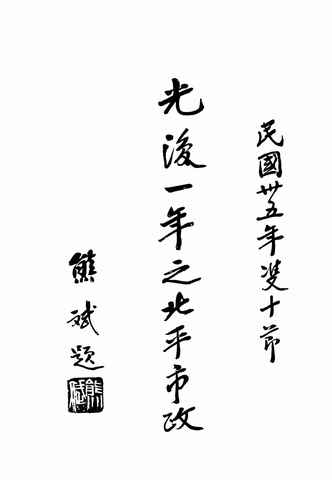 民國卅五年雙十節
光復一年之北平市政
熊斌題
熊斌